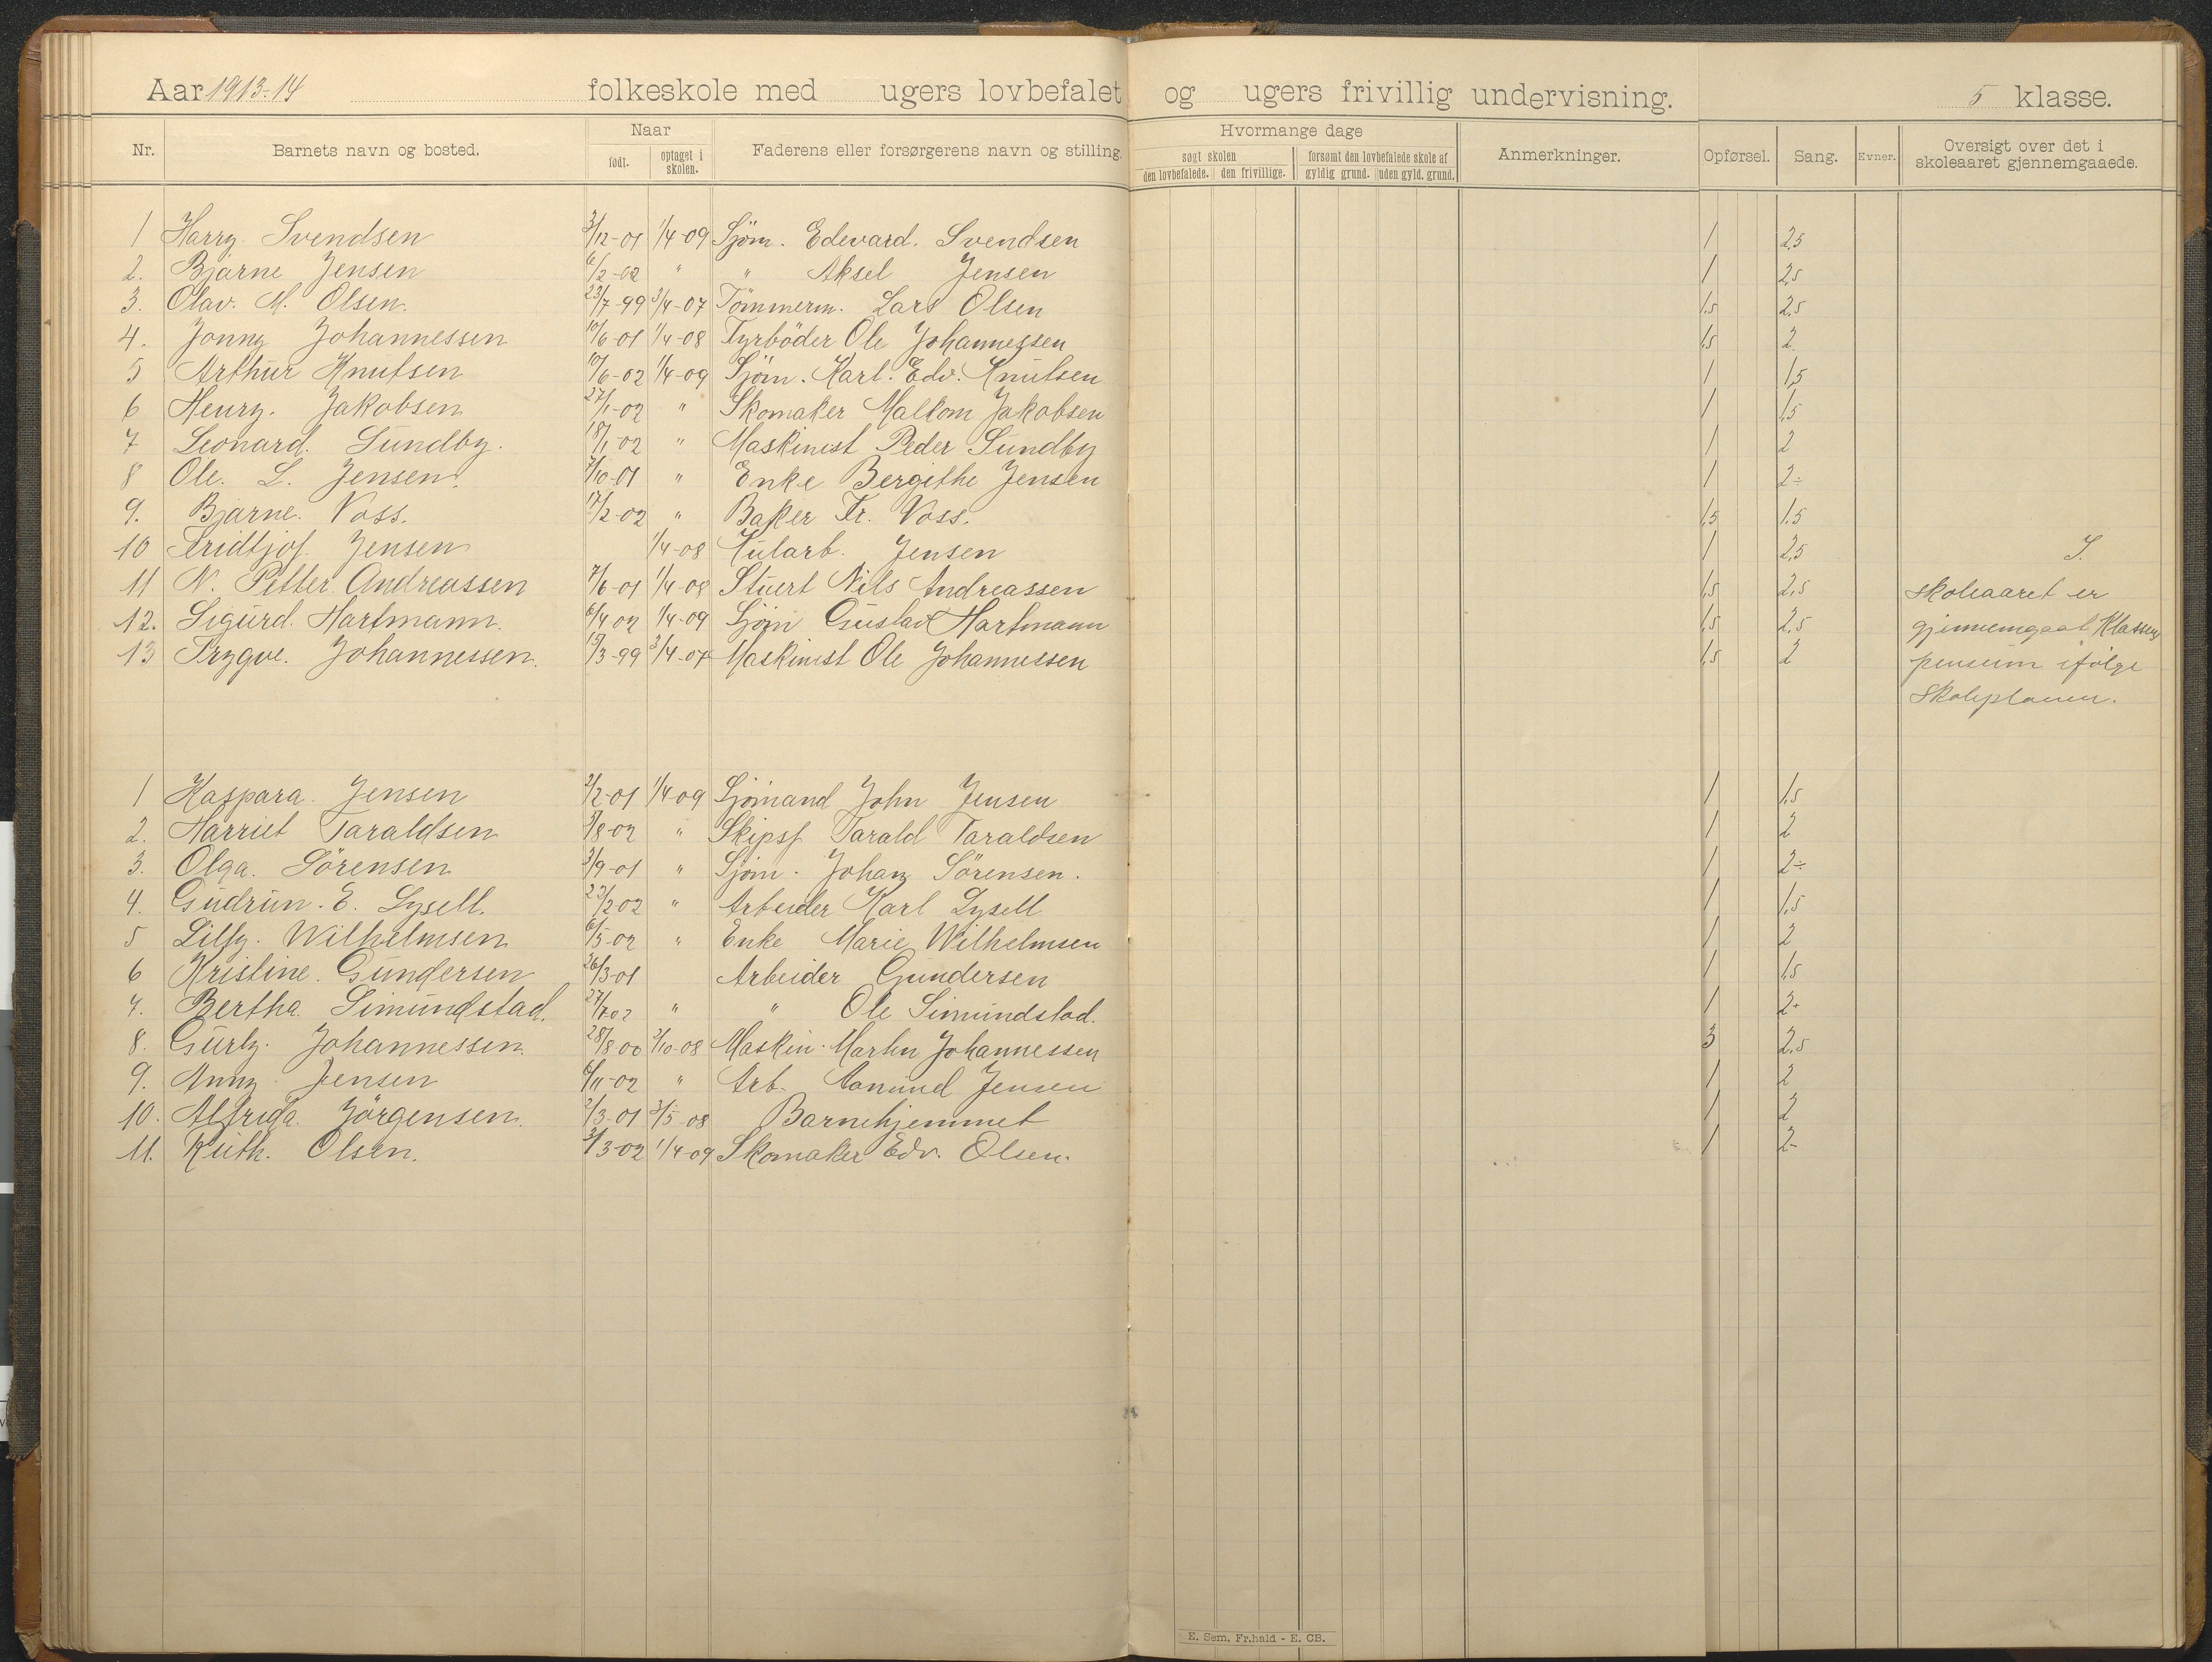 Aar 1913-14 folkeskole med ugers lovbefalet og ugers frivillig undervisning. 5 klasse.
Nr. Barnets navn og bosted. Naar født. optaget i skolen. Faderens eller forsørgerens navn og stilling. Hvormange dage søgt skolen den lovbefalede. den frivillige. forsømt den lovbefalede skole af gyldig grund. uden gyld. grund. Anmerkninger. Opførsel. Sang. Evner. Oversigt over det i skoleaaret gjennemgaaede.
1 Harry. Svendsen 3/12-01 1/4-09 Sjöm. Edevard. Svendsen 1 2,5
2. Bjarne Jensen 6/2-02 " " Aksel Jensen 1 2,5
3. Olav. M. Olsen. 23/7-99 3/4-07 Tömmerm. Lars Olsen 1,5 2,5
4. Jonny Johannessen 10/6-01 1/4-08 Fyrböder Ole Johannessen 1,5 2
5 Arthur Knutsen 10/6-02 1/4-09 Sjöm. Karl. Edv. Knutsen 1 1,5
6 Henry. Jakobsen 27/1-02 " Skomaker Malkom Jakobsen 1 1,5
7 Leonard. Sundby. 18/1-02 " Maskinist Peder Sundby 1 2
8 Ole. L. Jensen. 7/10-01 " Enke Bergithe Jensen 1 2÷
9. Bjarne. Voss. 17/2-02 " Baker Fr. Voss. 1,5 1.5
10 Fridtjof. Jensen 1/4-08 Kularb. Jensen 1 2,5 I.
11 N. Petter Andreassen 7/6-01 1/4-08 Stuert Nils Andreassen 1,5 2,5 skoleaaret er
12. Sigurd. Hartmann. 6/4 02 1/4-09 Sjöm Gustav Hartmann 1,5 2,5 gjennemgaat Klassens
13 Trygve. Johannessen. 15/3-99 3/4-07 Maskinist Ole Johannessen 1,5 2 pensum ifölge
Skoleplanen.
1 Kaspara. Jensen 2/2-01 1/4-09 Sjömand John Jensen 1 1,5
2. Harriet Taraldsen 8-02 " Skipsf Tarald Taraldsen 1 2
3. Olga. Sörensen 3/9-01 " Sjöm. Johan Sörensen. 1 2÷
4. Gudrun. E. Lysell. 23/2 02 " Arbeider Karl Lysell 1 1,5
5 Lilly. Wilhelmsen 6/5-02 " Enke Marie Wilhelmsen 1 2
6 Kristine. Gundersen 26/3-01 Arbeider Gundersen 1 1,5
7. Bertha. Simundstad. 27/7-02 " " Ole Simundstad. 1 2÷
8. Gurly. Johannessen 28/8-00 3/10-08 Maskin. Martin Johannessen 3 2,5
9. Anny. Jensen 6/11-02 " Arb. Aanund Jensen 1 2
10. Alfrida. Jörgensen. 2/3-01 3/5-08 Barnehjemmet 1 2
11. Ruth. Olsen. 3/3-02 1/4-09 Skomaker Edv. Olsen. 1 2-
E. Sem, Fr.hald - E. CB.